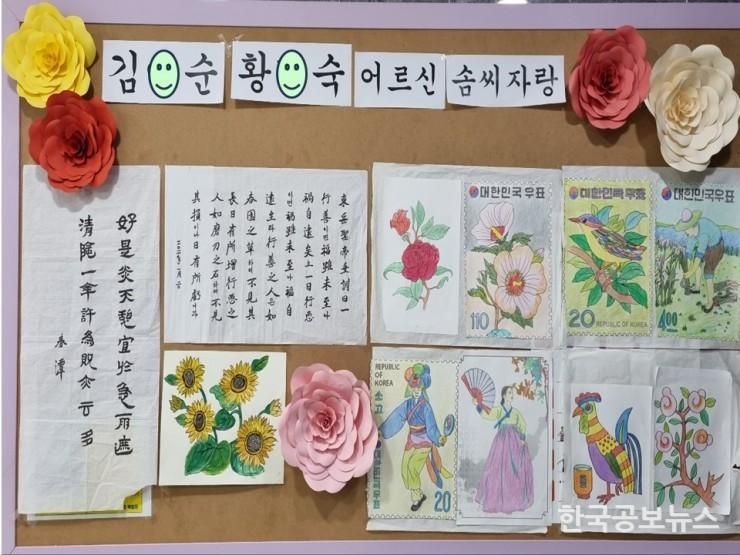 김 순 황 숙 어르신 솜씨자랑
東岳聖帝垂訓曰一
行善이면福雖未至나
禍自遠矣上一日行惡
이면禍雖未至나福自
遠矣라行善之人은如
春園之草하야不見其
長日有所增行惡之
人如磨刀之石하야不見
其損이나日有所虧니라
好是炎天 宜於急雨
清 一傘許為敗炎云多
春潭
대한민국우표
110
대한민국우표
20 REPUBLIC OF KOREA
대한민국우표
400
REPUBLIC
OF
KOREA
소고
대한민국우표
20
한국공보뉴스